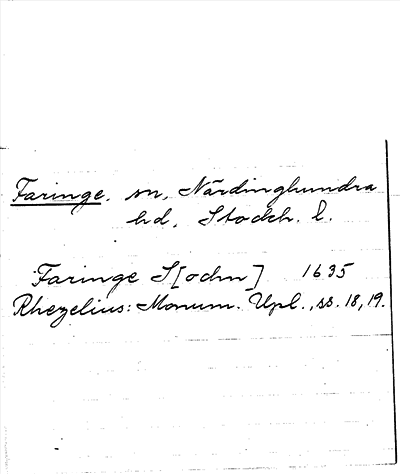 Faringe. sn, Närdinghundra
hd, Stockh. l.
Faringe S[ochn] 1635
Rhezelius: Monum. Upl., ss. 18, 19.